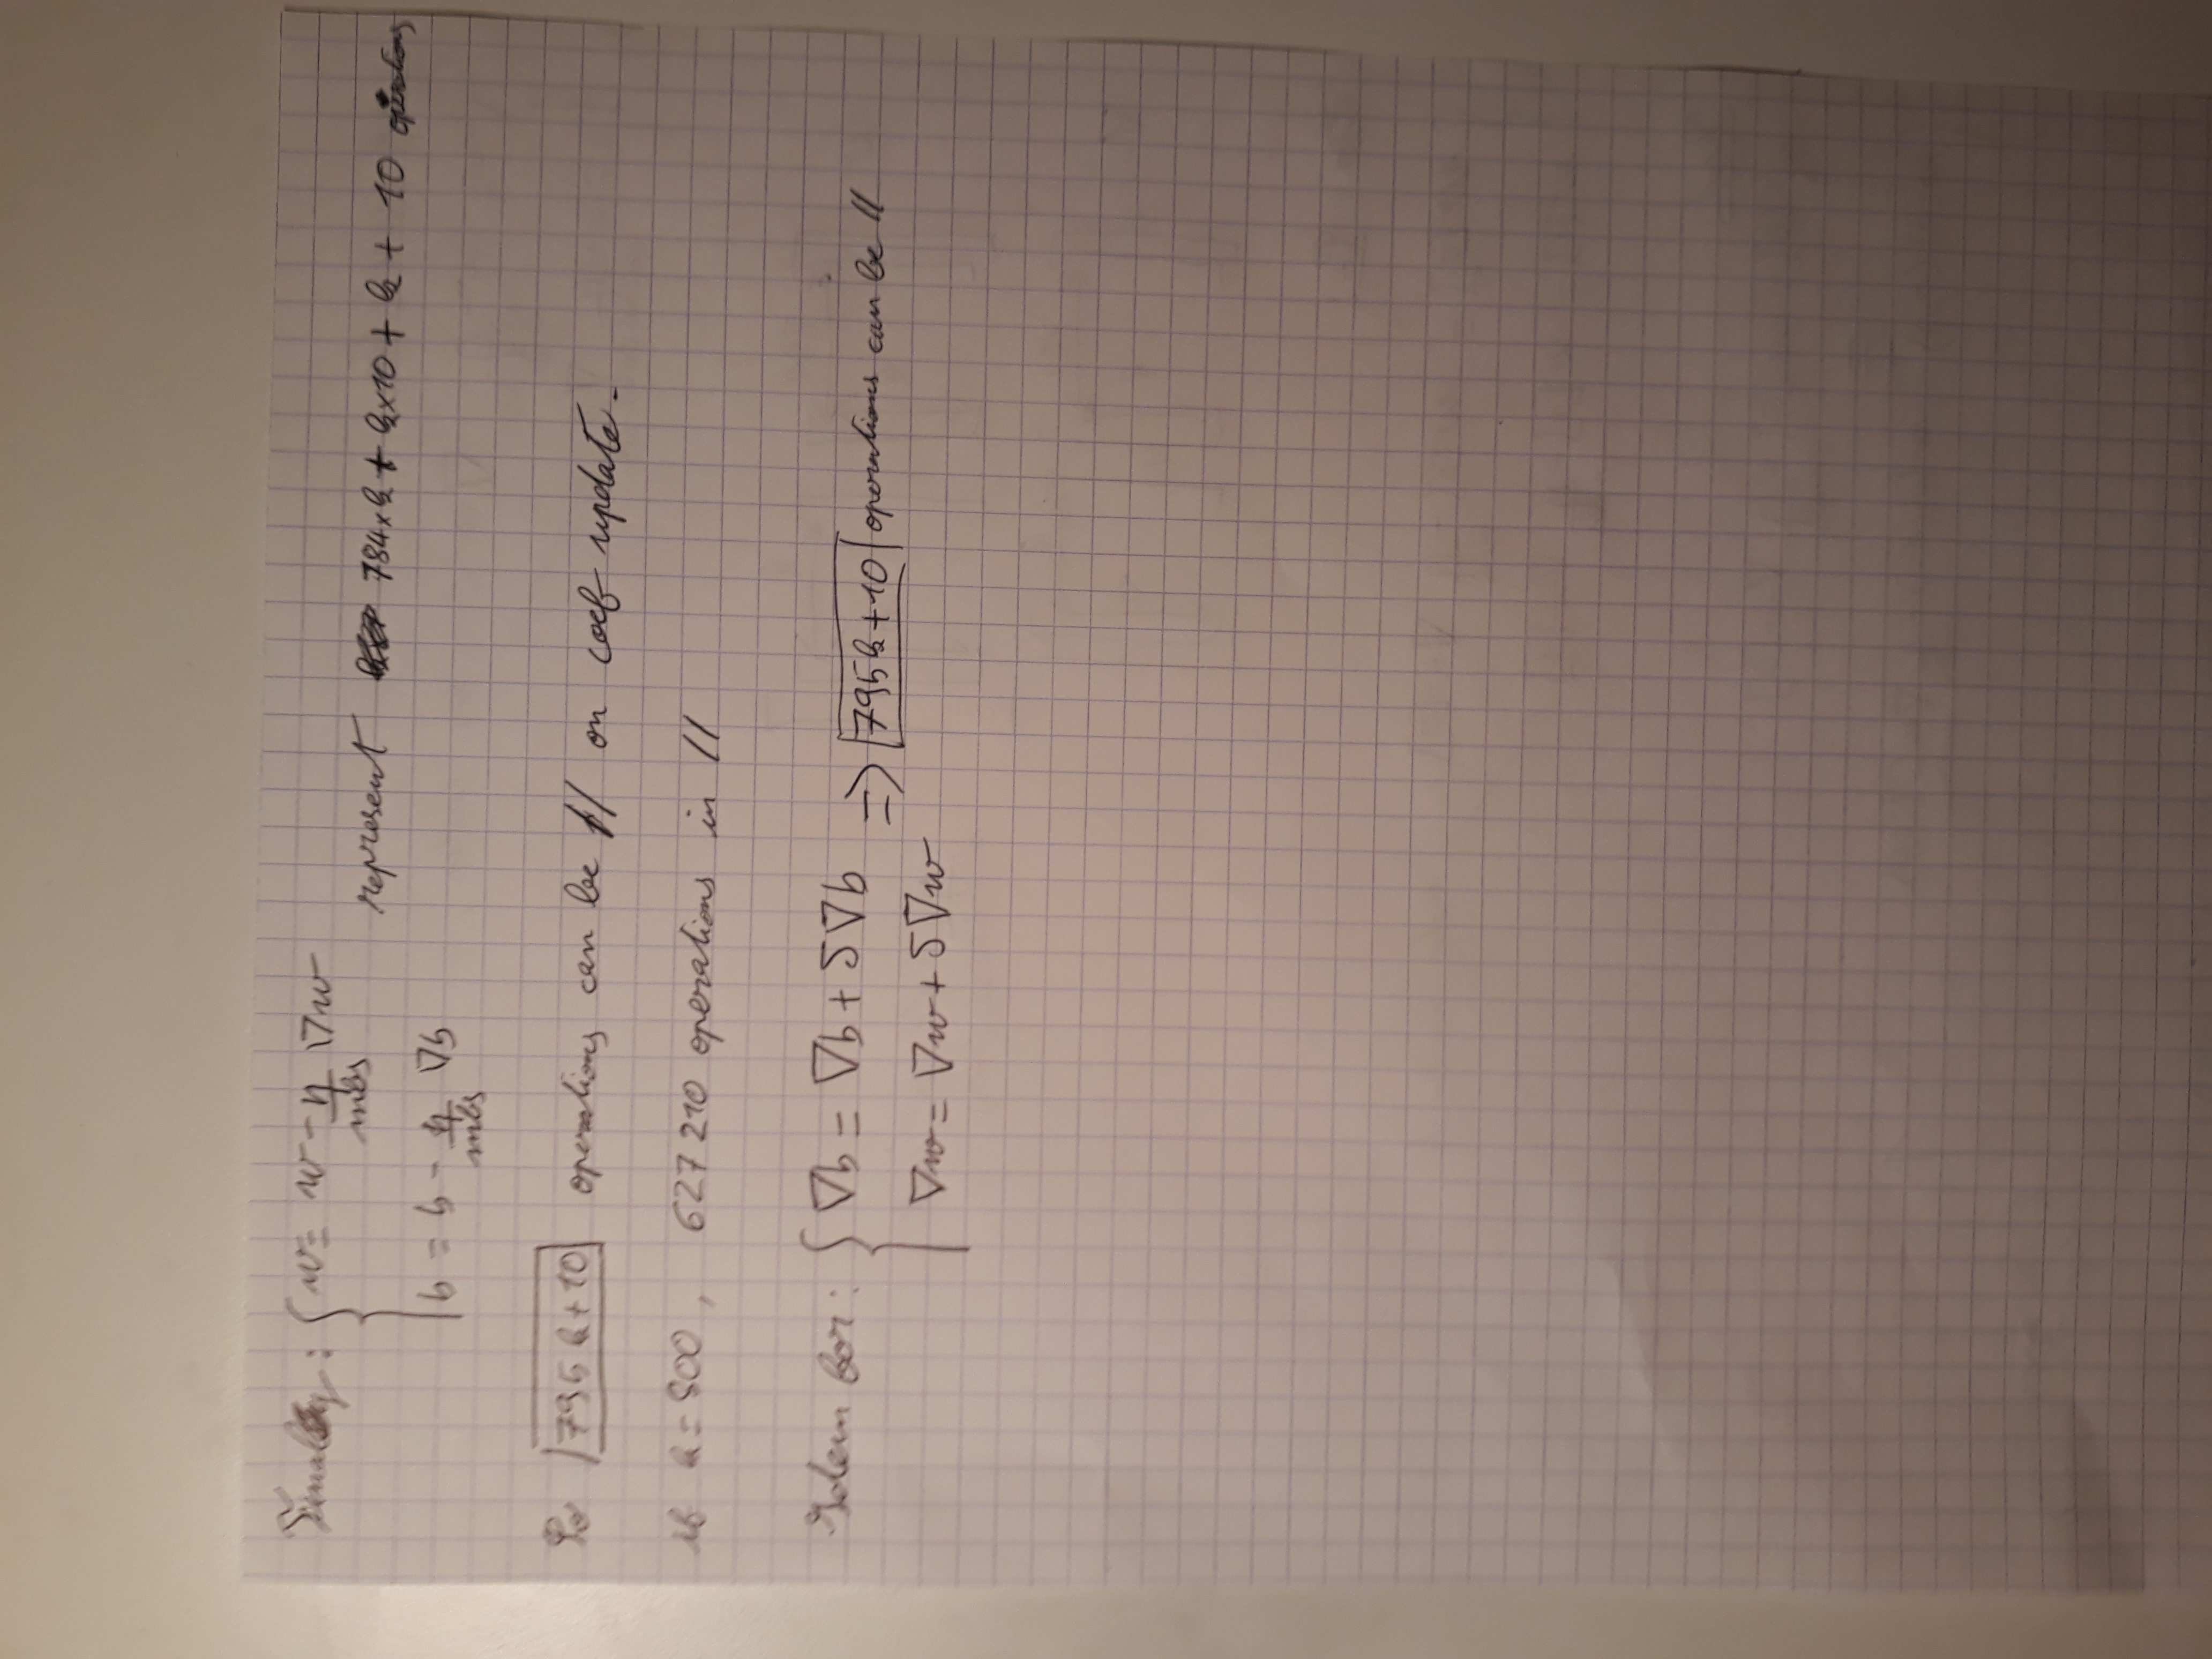 Finally : { w = w - η/mbs ∇w
represent 784×k + k×10 + k + 10 operations
b = b - η/mbs ∇b
So 795k+10 operations can be // on coef update.
if k=800, 627210 operations in //
Idem for : { ∇b = ∇b + δ∇b ⇒ 795k+10 operations can be //
∇w = ∇w + δ∇w